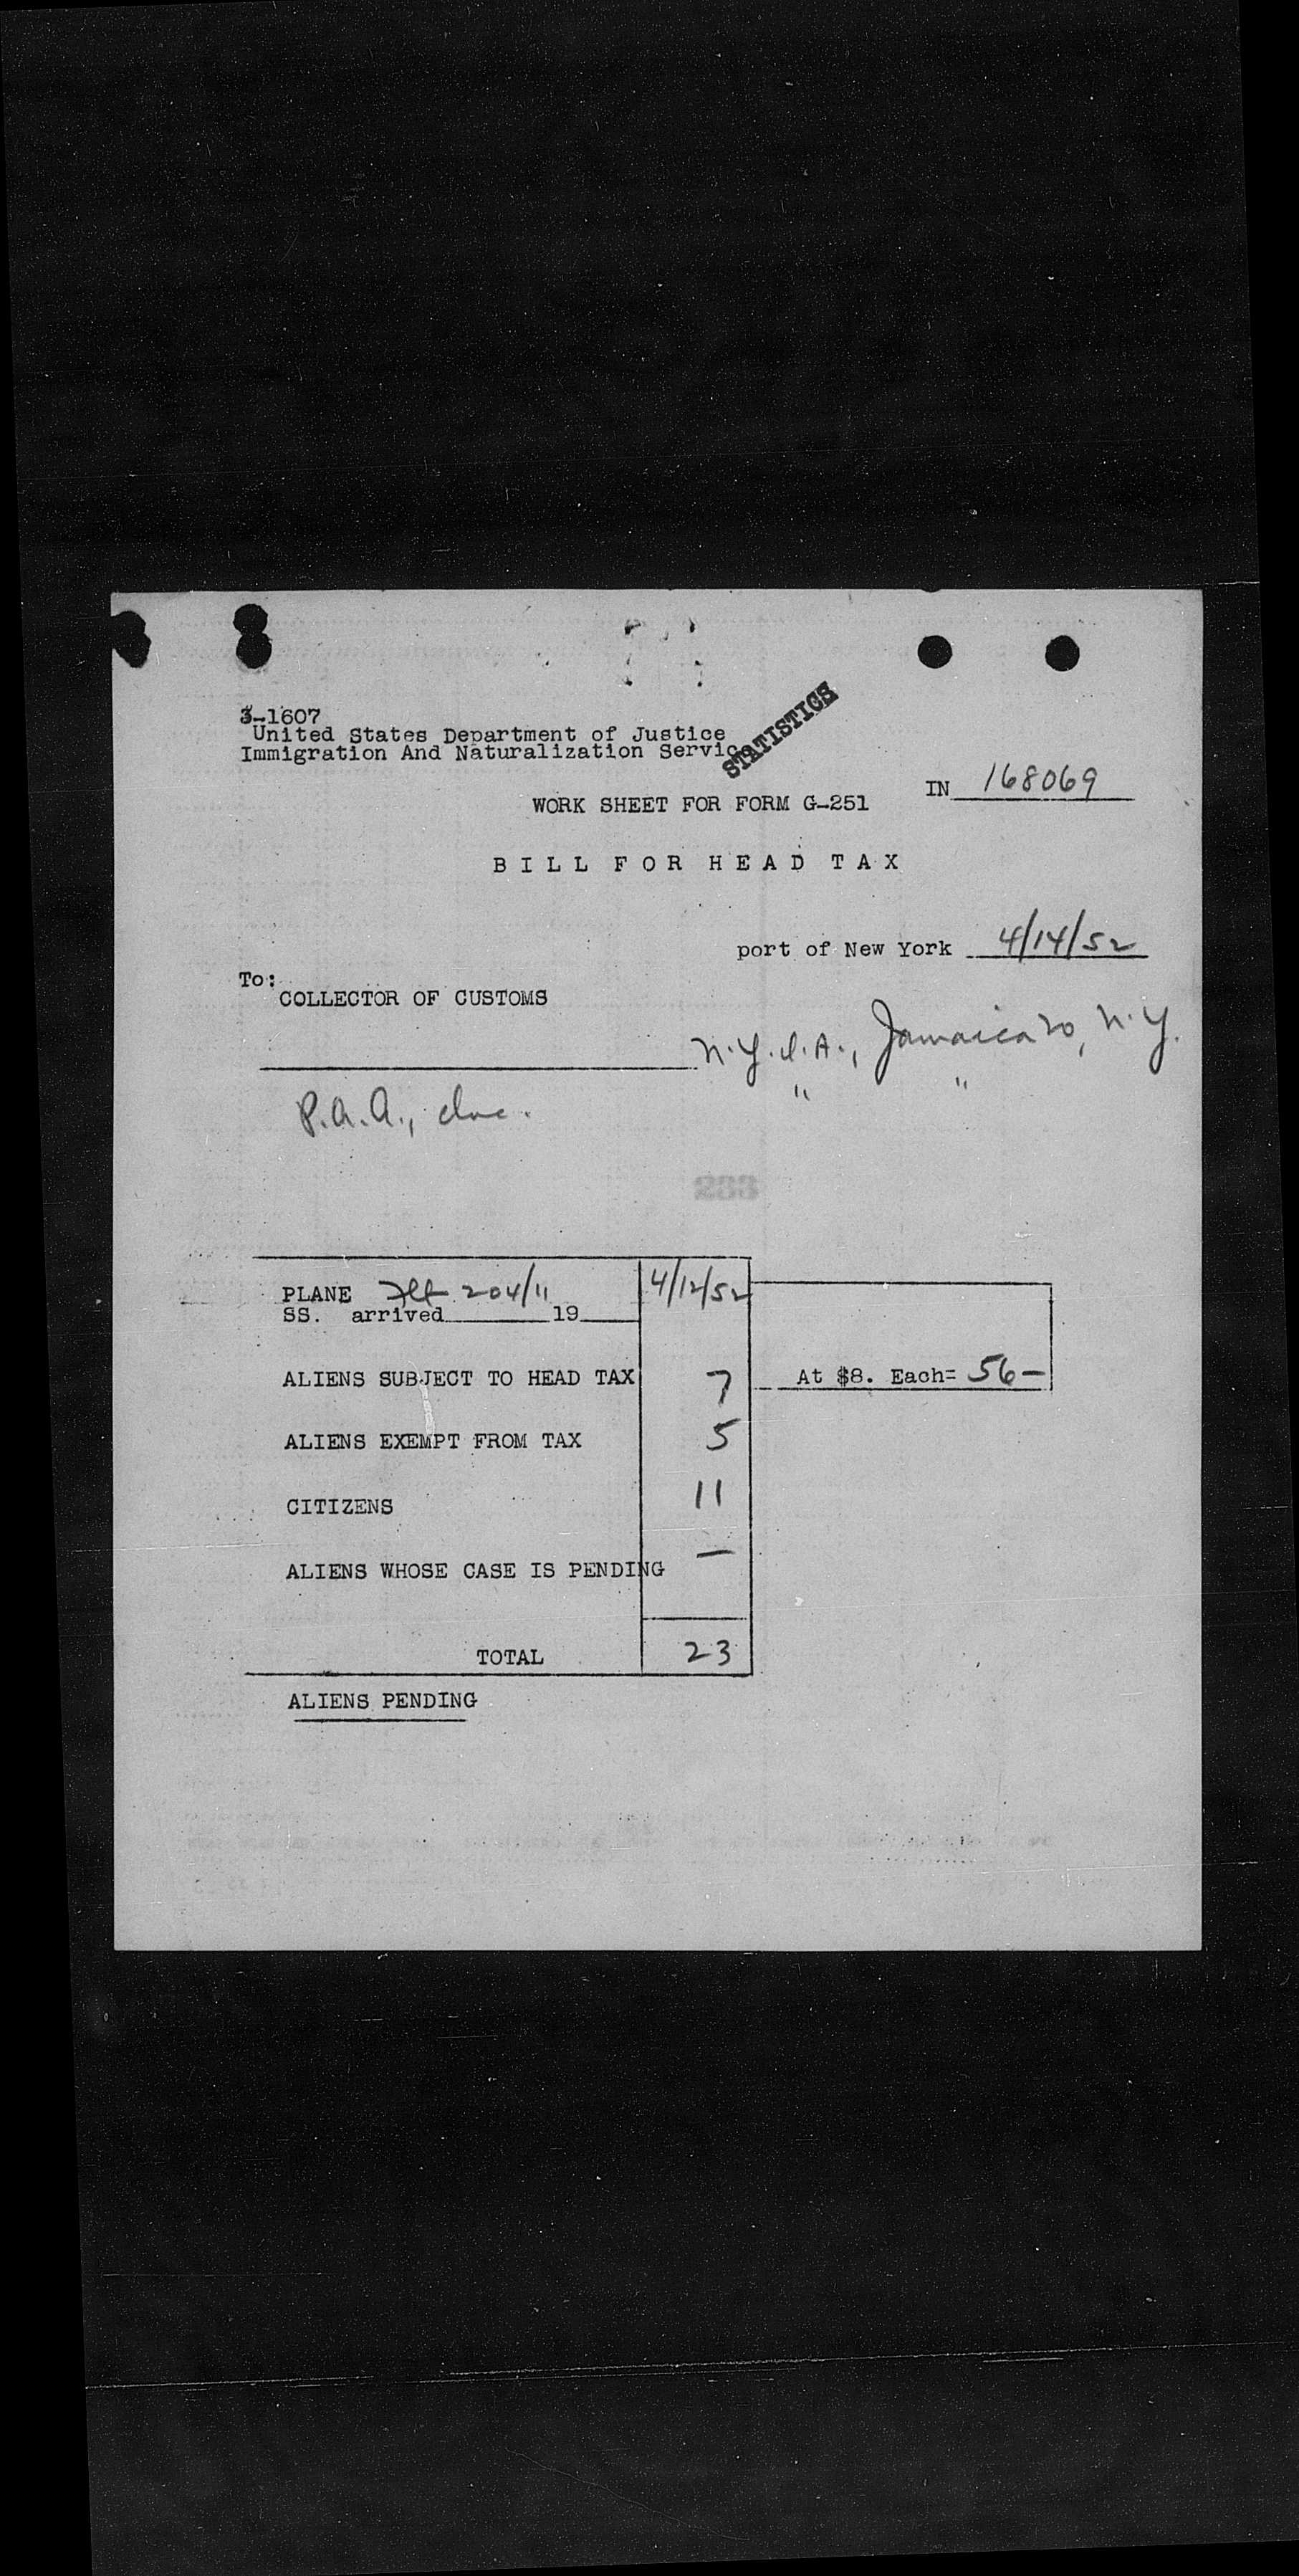 3-1607
United States Department of Justice
Immigration And Naturalization Service
STATISTICS
IN 168069
WORK SHEET FOR FORM G-251
BILL FOR HEAD TAX
port of New York 4/14/52
To:
COLLECTOR OF CUSTOMS
N.Y.I.A., Jamaica 20, N.Y.
P.A.A., Inc. " "
233
PLANE Flt 204/11 4/12/52
SS. arrived 19
ALIENS SUBJECT TO HEAD TAX 7 At $8. Each= 56-
ALIENS EXEMPT FROM TAX 5
CITIZENS 11
ALIENS WHOSE CASE IS PENDING —
TOTAL 23
ALIENS PENDING